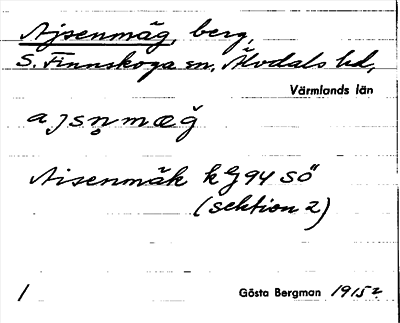 Ajsenmäg, berg,
S. Finnskoga sn, Älvdals hd,
Värmlands län
ajsn̥mæǧ
Aisenmäk kg 94 SÖ
(sektion 2)
1 Gösta Bergman 1915